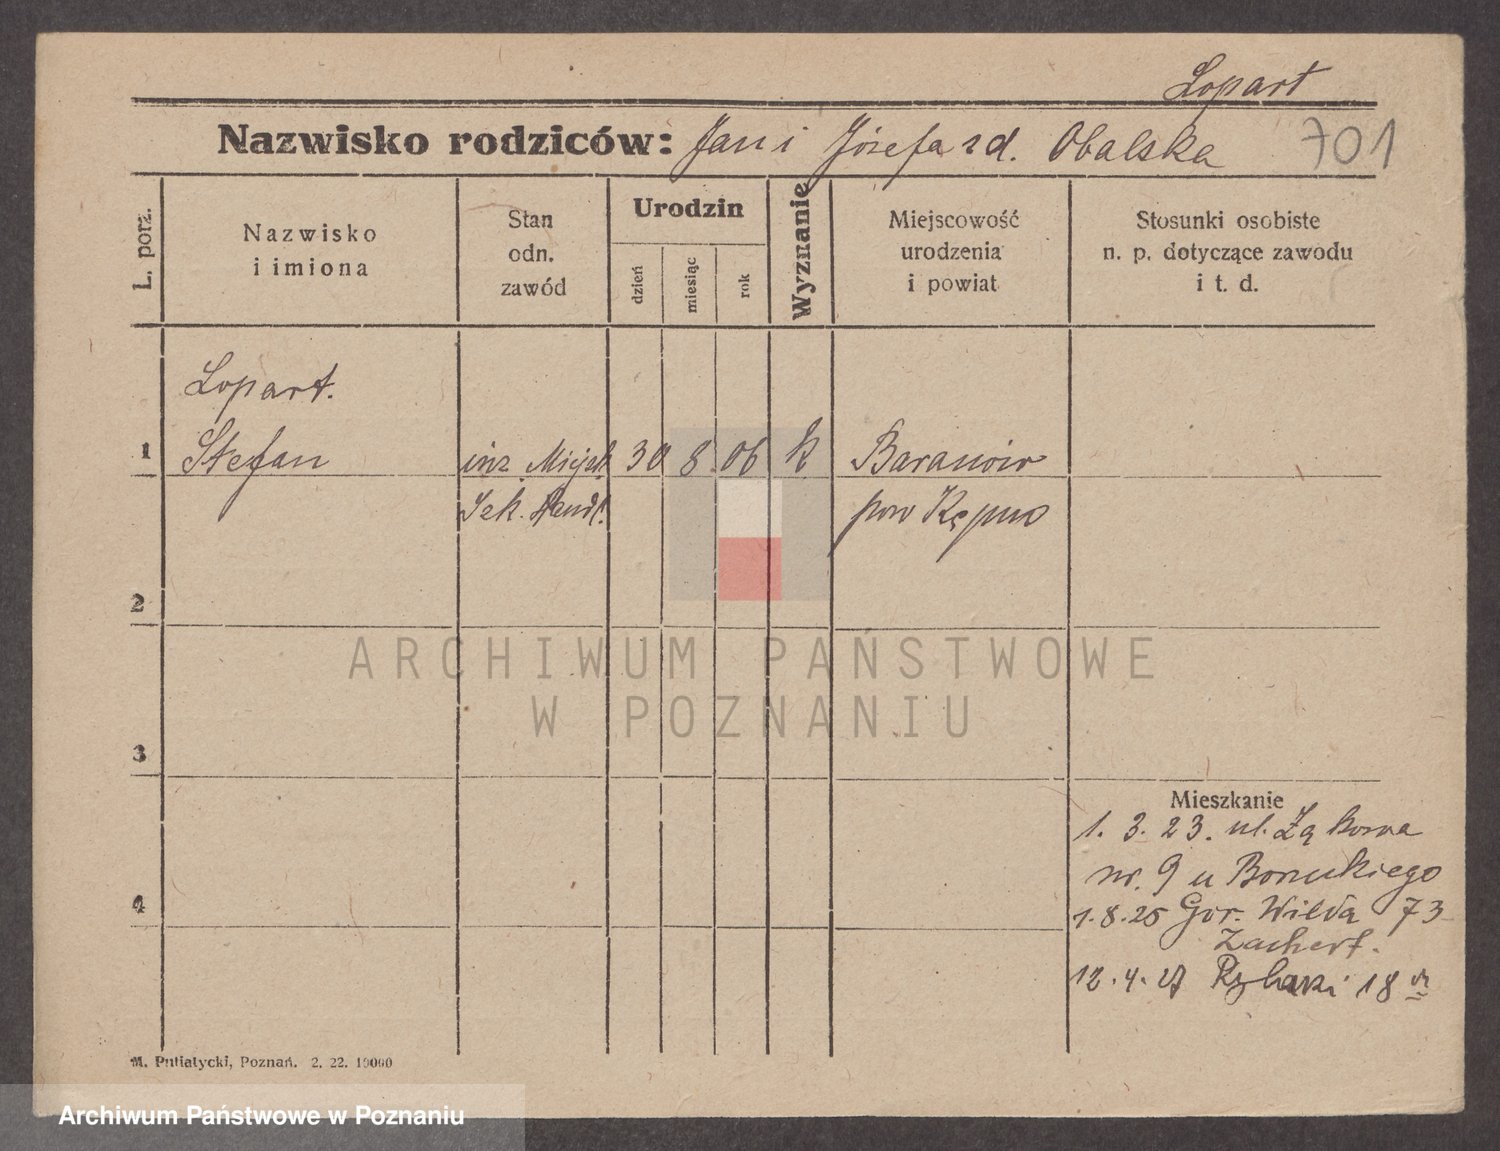 Lopart
Nazwisko rodziców: Jan i Józefa zd. Obalska 701
L. porz.
Nazwisko
i imiona
Stan
odn.
zawód
Urodzin
dzień
miesiąc
rok
Wyznanie
Miejscowość
urodzenia
i powiat
Stosunki osobiste
n. p. dotyczące zawodu
i t. d.
Lopart.
1 Stefan 30 8 06 k Baranów
Handl. pow Kępno
2
3
4
Mieszkanie
1. 3. 23. ul. Łąkowa
nr. 9 u
1.8.25 Gór. Wilda 73
Zachert.
12.4.27 Rybaki 18
M. Putiatycki, Poznań. 2. 22. 10000
ARCHIWUM PAŃSTWOWE
W POZNANIU
Archiwum Państwowe w Poznaniu